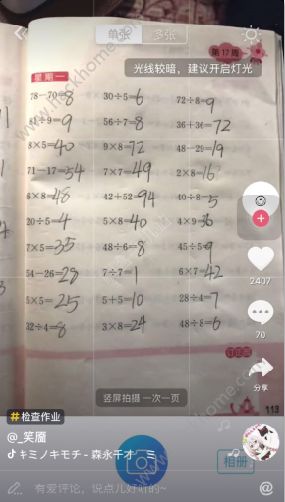 单张 多张
第17周
光线较暗，建议开启灯光
星期一
78-70=8 30÷5=6 72÷8=9
81÷9=9 56÷7=8 36+36=72
8×5=40 9×8=72 48-29=19
71-17=54 7×7=49 2×8=16
6×8=48 42+52=94 40÷8=5
20÷5=4 5×8=40 4×9=36
7×5=35 48÷6=8 45÷5=9
54-26=28 7÷7=1 6×7=42
5×5=25 5+5=10 28÷4=7
32÷4=8 3×8=24 48÷8=6
2407
70
分享
竖屏拍摄 一次一页
113
#检查作业
@_笑靥
キミノキモチ - 森永千才
相册
有爱评论，说点儿好听的~
@